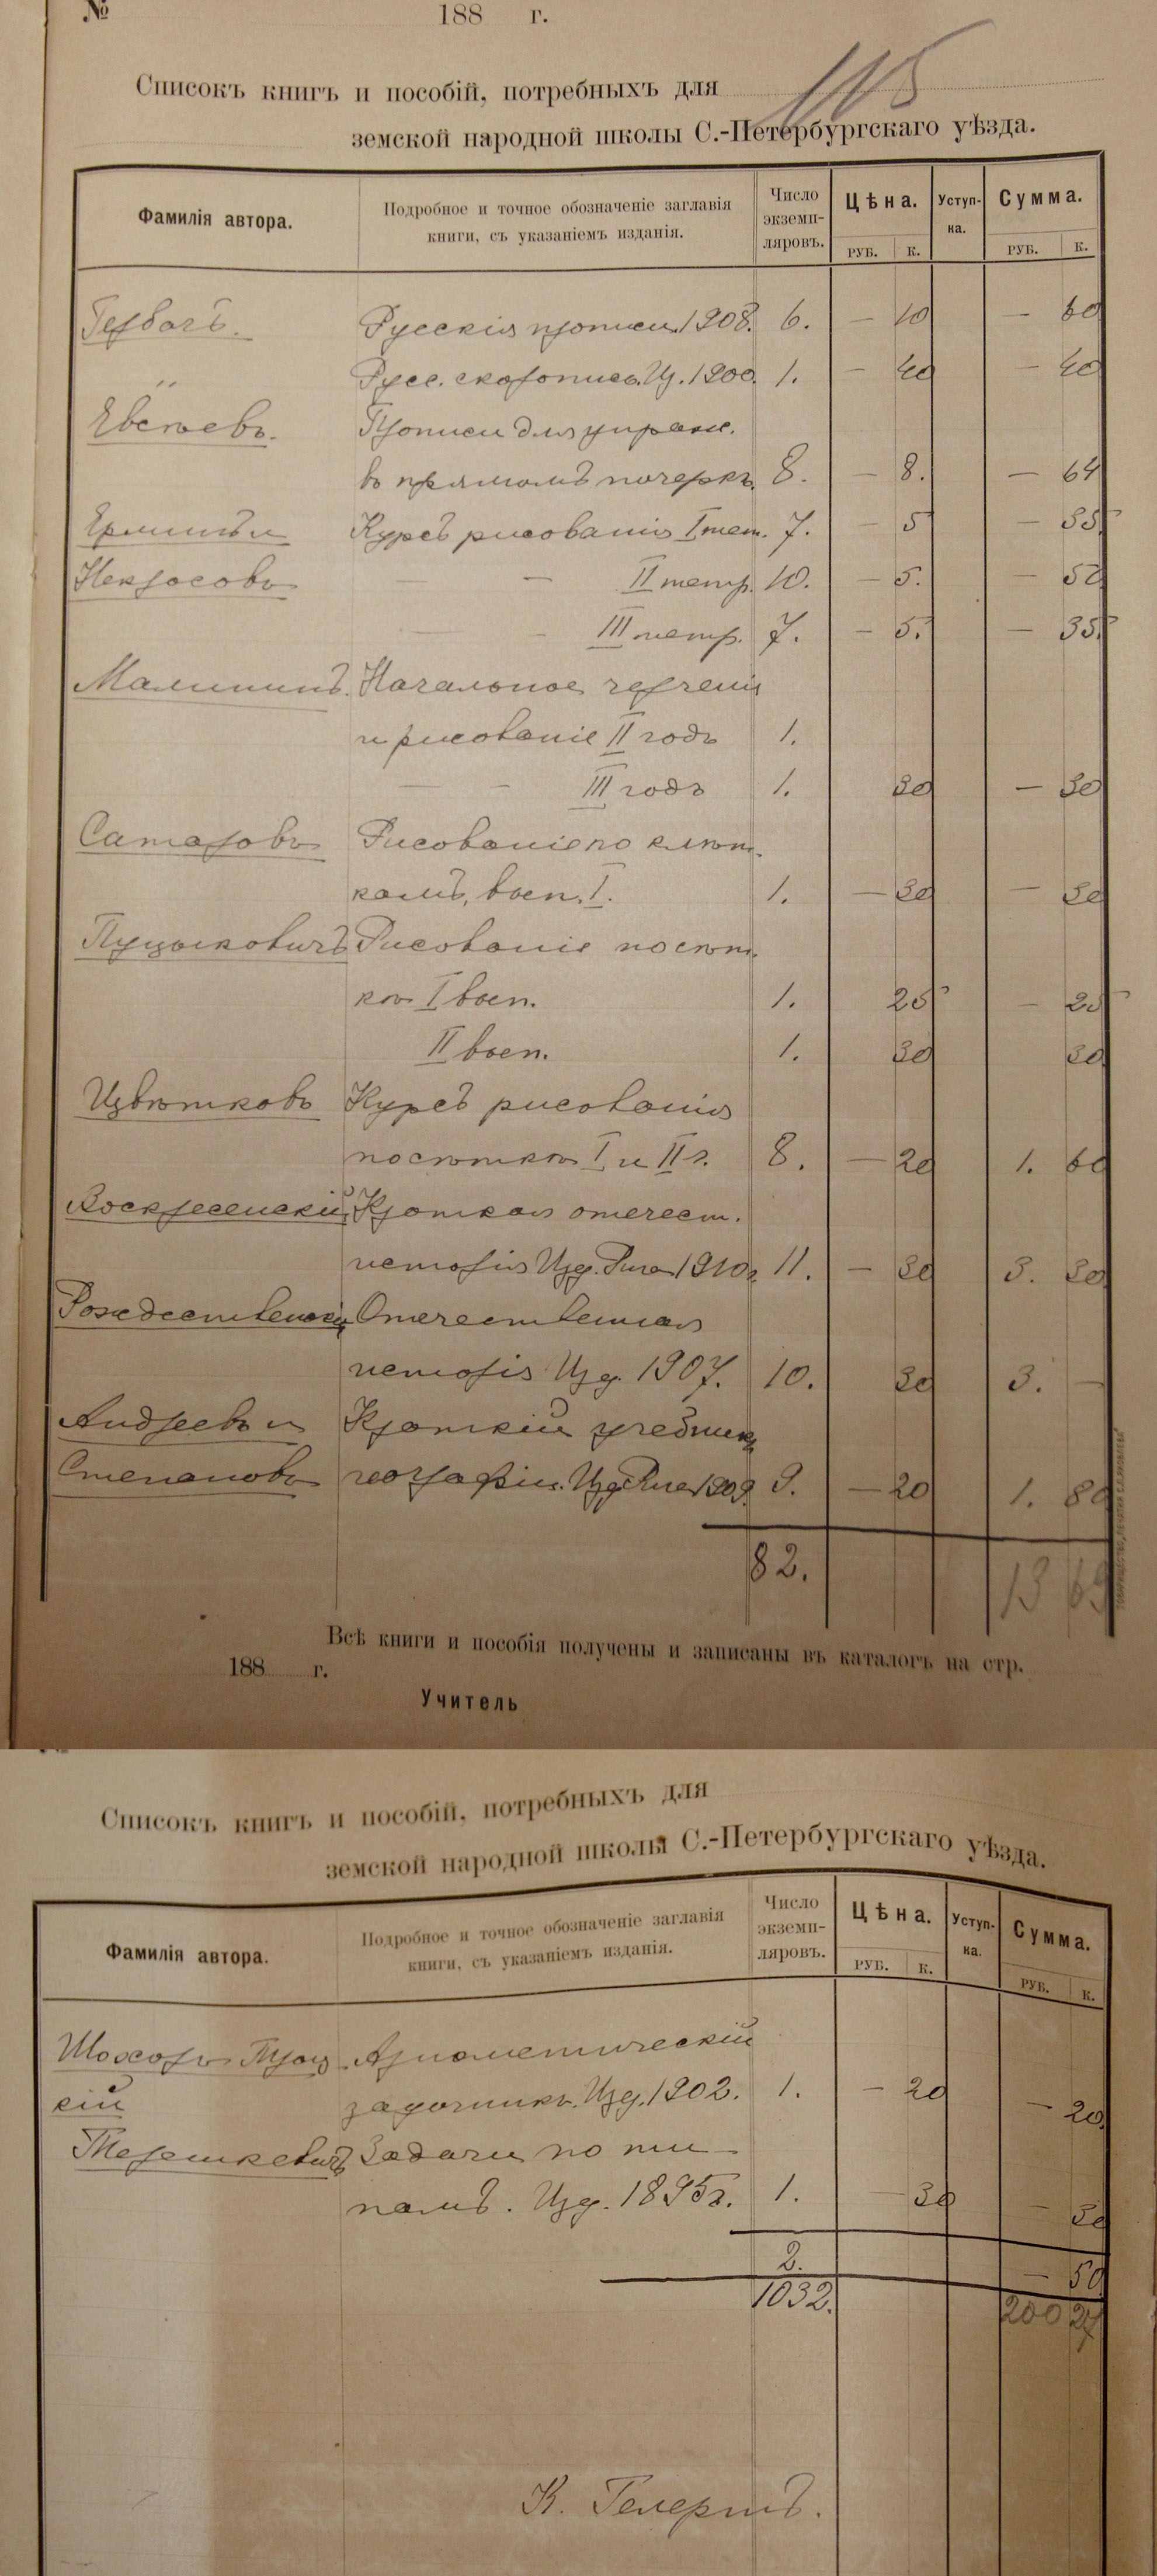 № 188 г.
115
Списокъ книгъ и пособій, потребныхъ для
земской народной школы С.-Петербургскаго уѣзда.
Фамилія автора. Подробное и точное обозначеніе заглавія книги, съ указаніемъ изданія. Число экземп-ляровъ. Цѣна. РУБ. К. Уступ-ка. Сумма. РУБ. К.
Гербачъ. Русскія прописи 1908. 6. — 10 — 60
" Русс. скоропись. Из. 1900. 1. — 40 — 40
Евсѣевъ. Прописи для упраж.
въ прямомъ почеркѣ. 8. — 8. — 64
Ерминъ и Курсъ рисованія I тет. 7. — 5 — 35
Некрасовъ — II тетр. 10. — 5. — 50
— — III тетр. 7. — 5. — 35
Малининъ. Начальное черченіе
и рисованіе II годъ 1.
— — III годъ 1. 30 — 30
Сатаровъ Рисованіе по клѣт-
камъ, вып. I. 1. — 30 — 30
Пуцыковичъ Рисованіе по сѣт-
кѣ I вып. 1. 25 — 25
II вып. 1. 30 30
Цвѣтковъ Курсъ рисованія
по сѣткѣ I и II г. 8. — 20 1. 60
Воскресенскій Краткая отечест.
исторія Изд. Рига 1910 г. 11. — 30 3. 30
Рождественскій Отечественная
исторія Изд. 1907. 10. 30 3. —
Андреевъ и Краткій учебникъ
Степановъ географіи. Изд. Рига 1909. 9. — 20 1. 80
82. 13 69
Всѣ книги и пособія получены и записаны въ каталогъ на стр.
188 г.
Учитель
Списокъ книгъ и пособій, потребныхъ для
земской народной школы С.-Петербургскаго уѣзда.
Фамилія автора. Подробное и точное обозначеніе заглавія книги, съ указаніемъ изданія. Число экземп-ляровъ. Цѣна. РУБ. К. Уступ-ка. Сумма. РУБ. К.
Шохоръ Троц Арифметическій
кій задачникъ. Изд. 1902. 1. — 20 — 20
Терешкевичъ Задачи по ти-
памъ. Изд. 1895 г. 1. — 30 — 30
2. — 50
1032. 200 27
К. Гелертъ.